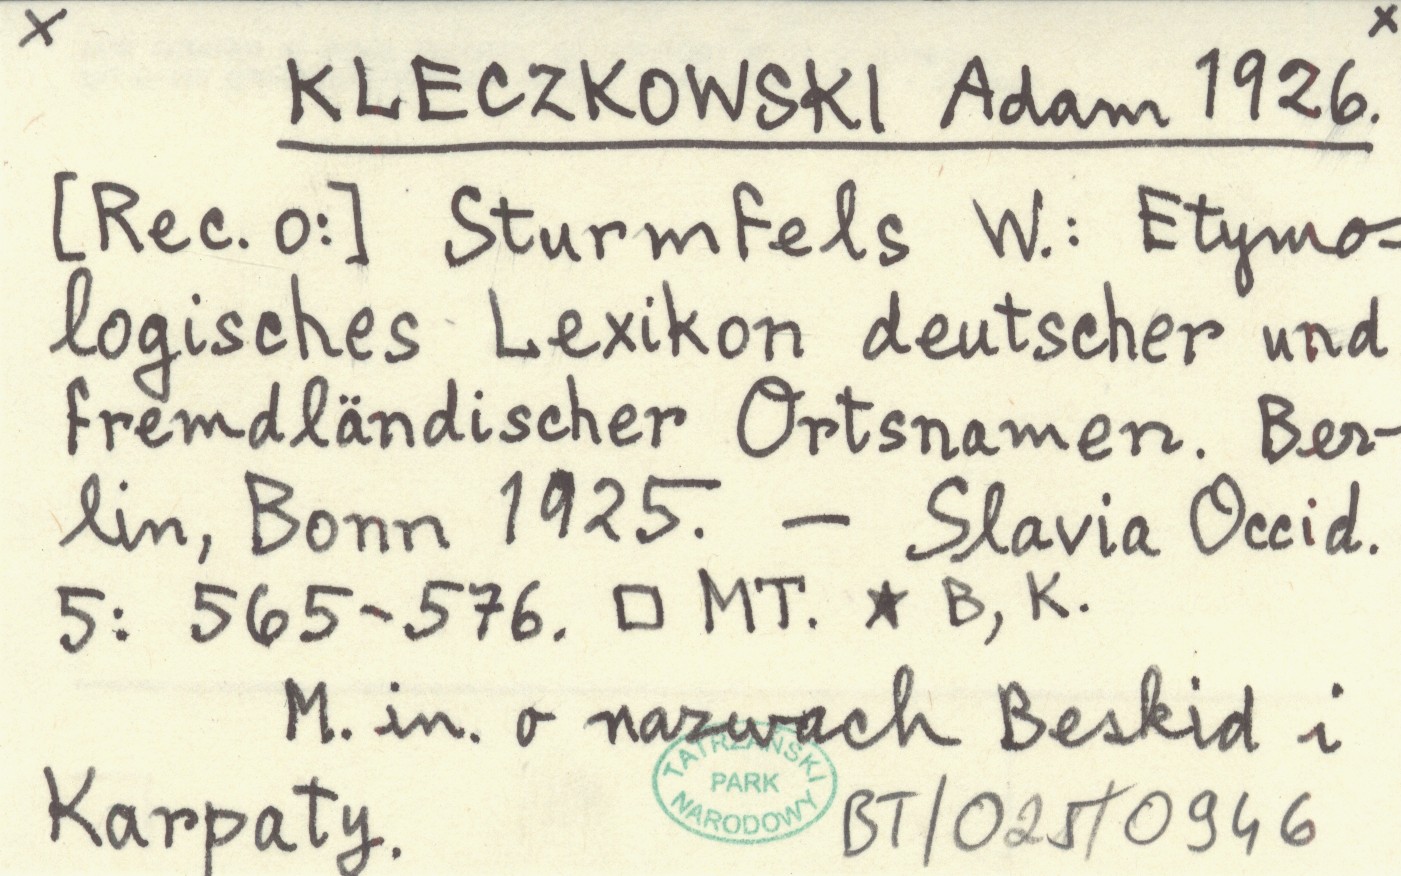 x x
KLECZKOWSKI Adam 1926.
[Rec. o:] Sturmfels W.: Etymo-
logisches Lexikon deutscher und
fremdländischer Ortsnamen. Ber-
lin, Bonn 1925. — Slavia Occid.
5: 565-576. □ MT. ★ B, K.
M. in. o nazwach Beskid i
Karpaty.
TATRZAŃSKI
PARK
NARODOWY
BT/025/0946